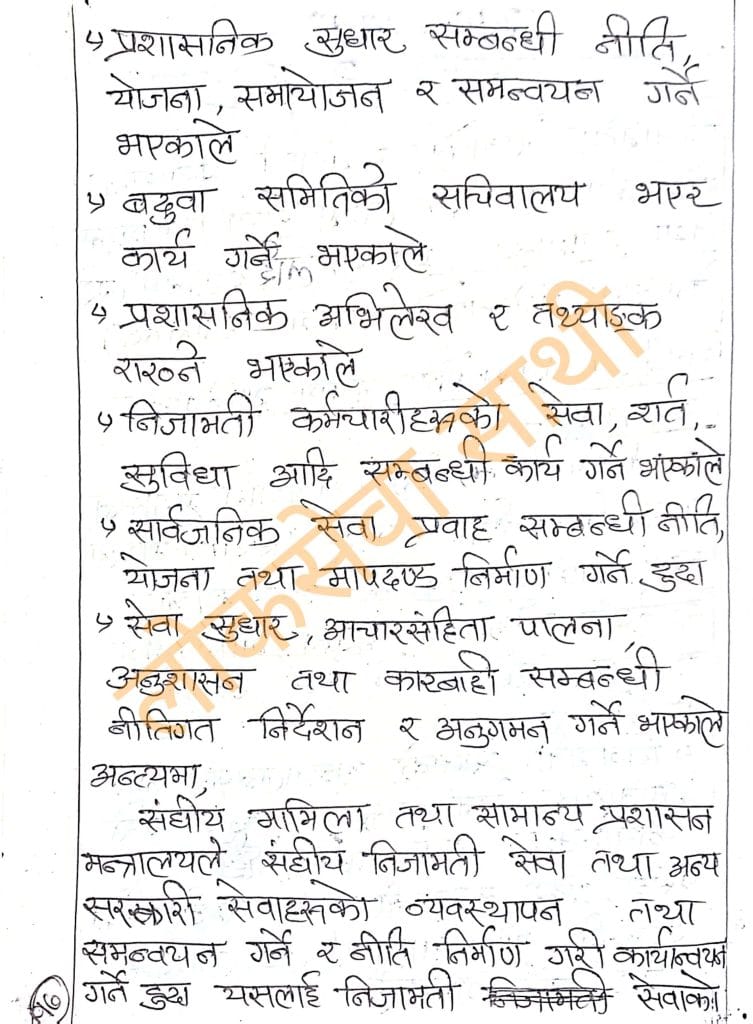 ↳ प्रशासनिक सुधार सम्बन्धी नीति,
योजना, समायोजन र समन्वयन गर्ने
भएकाले
↳ बढुवा समितिको सचिवालय भएर
कार्य गर्ने भएकाले
↳ प्रशासनिक अभिलेख र तथ्याङ्क
राख्ने भएकाले
↳ निजामती कर्मचारीहरूको सेवा, शर्त,
सुविधा आदि सम्बन्धी कार्य गर्ने भएकाले
↳ सार्वजनिक सेवा प्रवाह सम्बन्धी नीति,
योजना तथा मापदण्ड निर्माण गर्ने हुदा
↳ सेवा सुधार, आचारसंहिता पालना,
अनुशासन तथा कारबाही सम्बन्धी
नीतिगत निर्देशन र अनुगमन गर्ने भएकाले
अन्त्यमा,
संघीय मामिला तथा सामान्य प्रशासन
मन्त्रालयले संघीय निजामती सेवा तथा अन्य
सरकारी सेवाहरूको व्यवस्थापन तथा
समन्वयन गर्ने र नीति निर्माण गरी कार्यान्वयन
गर्ने हुदा यसलाई निजामती निजामती सेवाको
लोकसेवा साथी